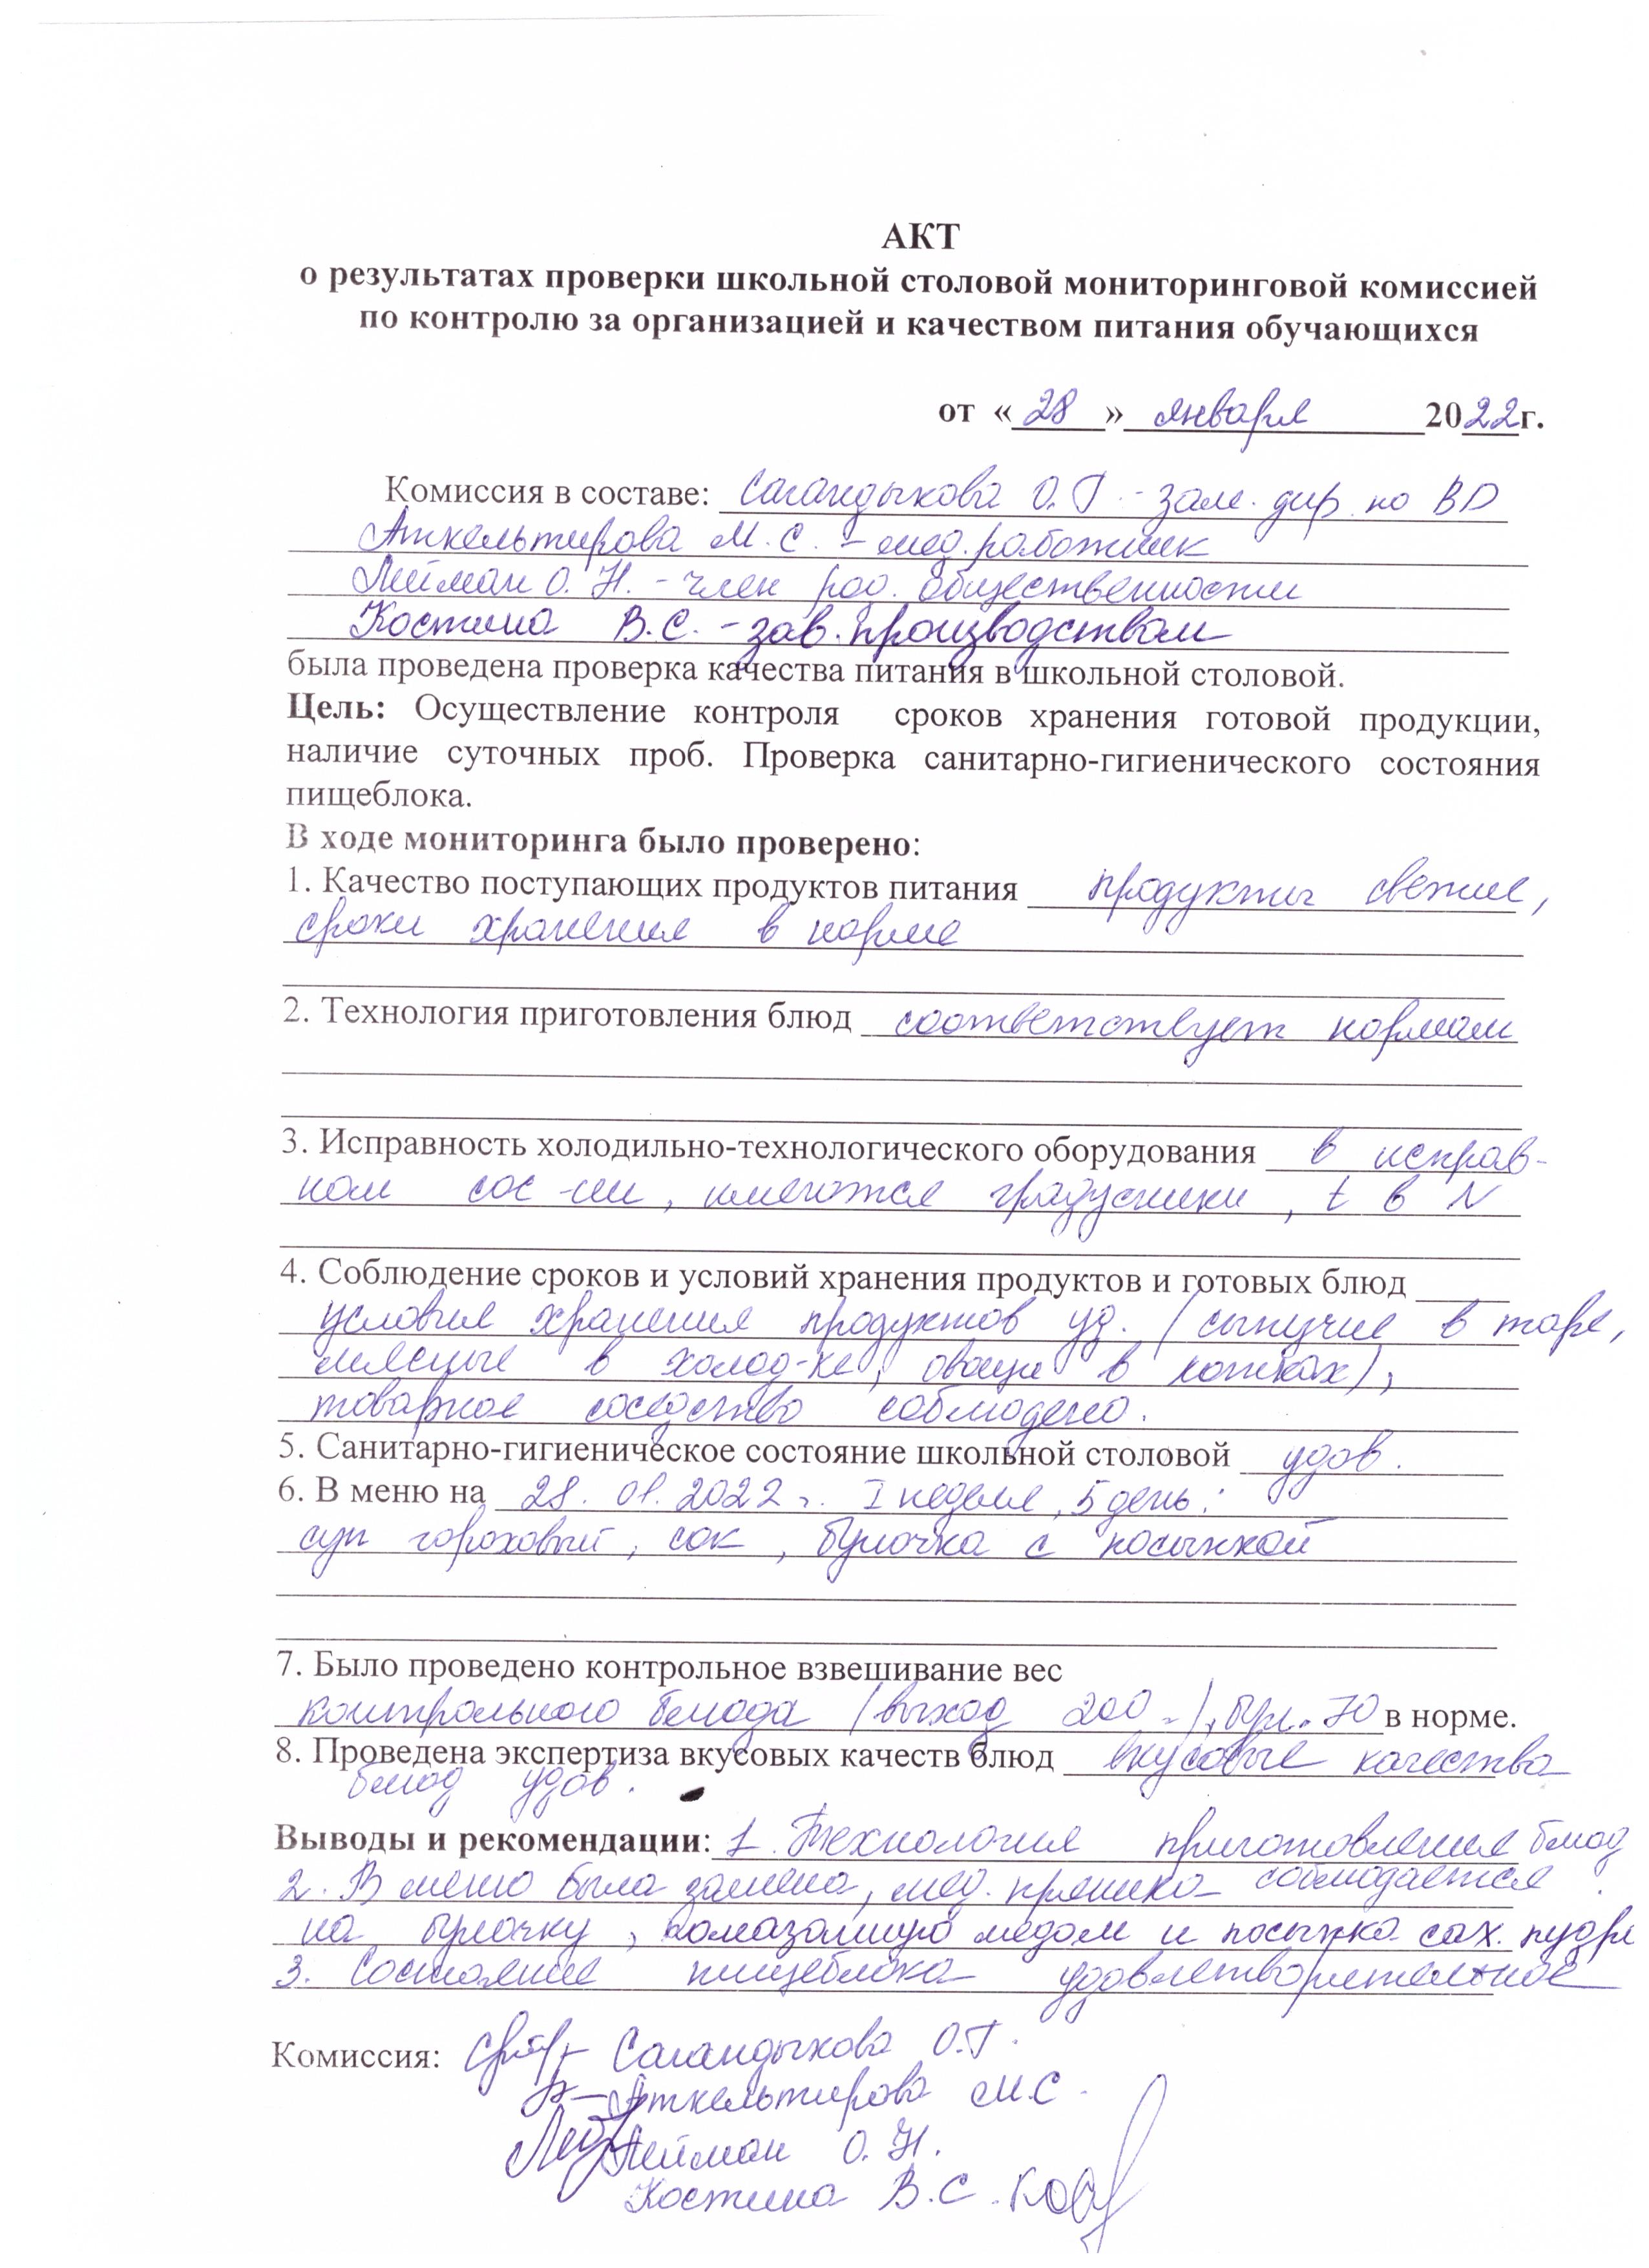 АКТ
о результатах проверки школьной столовой мониторинговой комиссией
по контролю за организацией и качеством питания обучающихся
от «28» января 2022г.
Комиссия в составе: Сагандыкова О.Г. - зам. дир. по ВР
Аткельтирова М.С. - мед. работник
Лейман О.Н. - член род. общественности
Костина В.С. - зав. производством
была проведена проверка качества питания в школьной столовой.
Цель: Осуществление контроля сроков хранения готовой продукции,
наличие суточных проб. Проверка санитарно-гигиенического состояния
пищеблока.
В ходе мониторинга было проверено:
1. Качество поступающих продуктов питания продукты свежие,
сроки хранения в норме
2. Технология приготовления блюд соответствует нормам
3. Исправность холодильно-технологического оборудования в исправ-
ном сос-нии, имеются градусники, t в N
4. Соблюдение сроков и условий хранения продуктов и готовых блюд
условия хранения продуктов уд. (сыпучие в таре,
мясные в холод-ке, овощи в),
товарное соседство соблюдено.
5. Санитарно-гигиеническое состояние школьной столовой удов.
6. В меню на 28.01.2022г. I неделя, 5 день:
суп гороховый, сок, булочка с посыпкой
7. Было проведено контрольное взвешивание вес
контрольного блюда (выход 200 -), бул. 70 в норме.
8. Проведена экспертиза вкусовых качеств блюд вкусовые качества
блюд удов.
Выводы и рекомендации: 1. Технология приготовления блюд
соблюдается.
2. В меню была замена, мед. пряника
на булочку, помазанную медом и посыпка сах. пудр
3. Состояние пищеблока удовлетворительное
Комиссия: Сагандыкова О.Г.
Аткельтирова М.С.
Лейман О.Н.
Костина В.С.